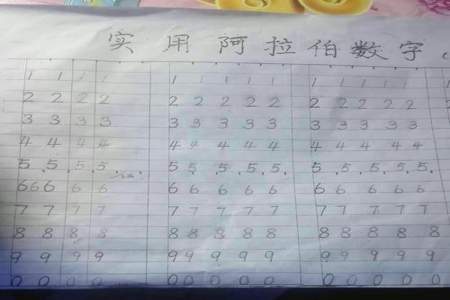 实用阿拉伯数字
1 1 1 1 1 1 1 1 1 1 1 1 1 1
2 2 2 2 2 2 2 2 2 2 2 2 2 2
3 3 3 3 3 3 3 3 3 3 3 3 3 3
4 4 4 4 4 4 4 4 4 4 4 4 4 4
5 5 5 5 5 5 5 5 5 5 5 5 5 5
6 6 6 6 6 6 6 6 6 6 6 6 6 6 6
7 7 7 7 7 7 7 7 7 7 7 7 7 7
8 8 8 8 8 8 8 8 8 8 8 8 8 8
9 9 9 9 9 9 9 9 9 9 9 9 9 9
0 0 0 0 0 0 0 0 0 0 0 0 0 0